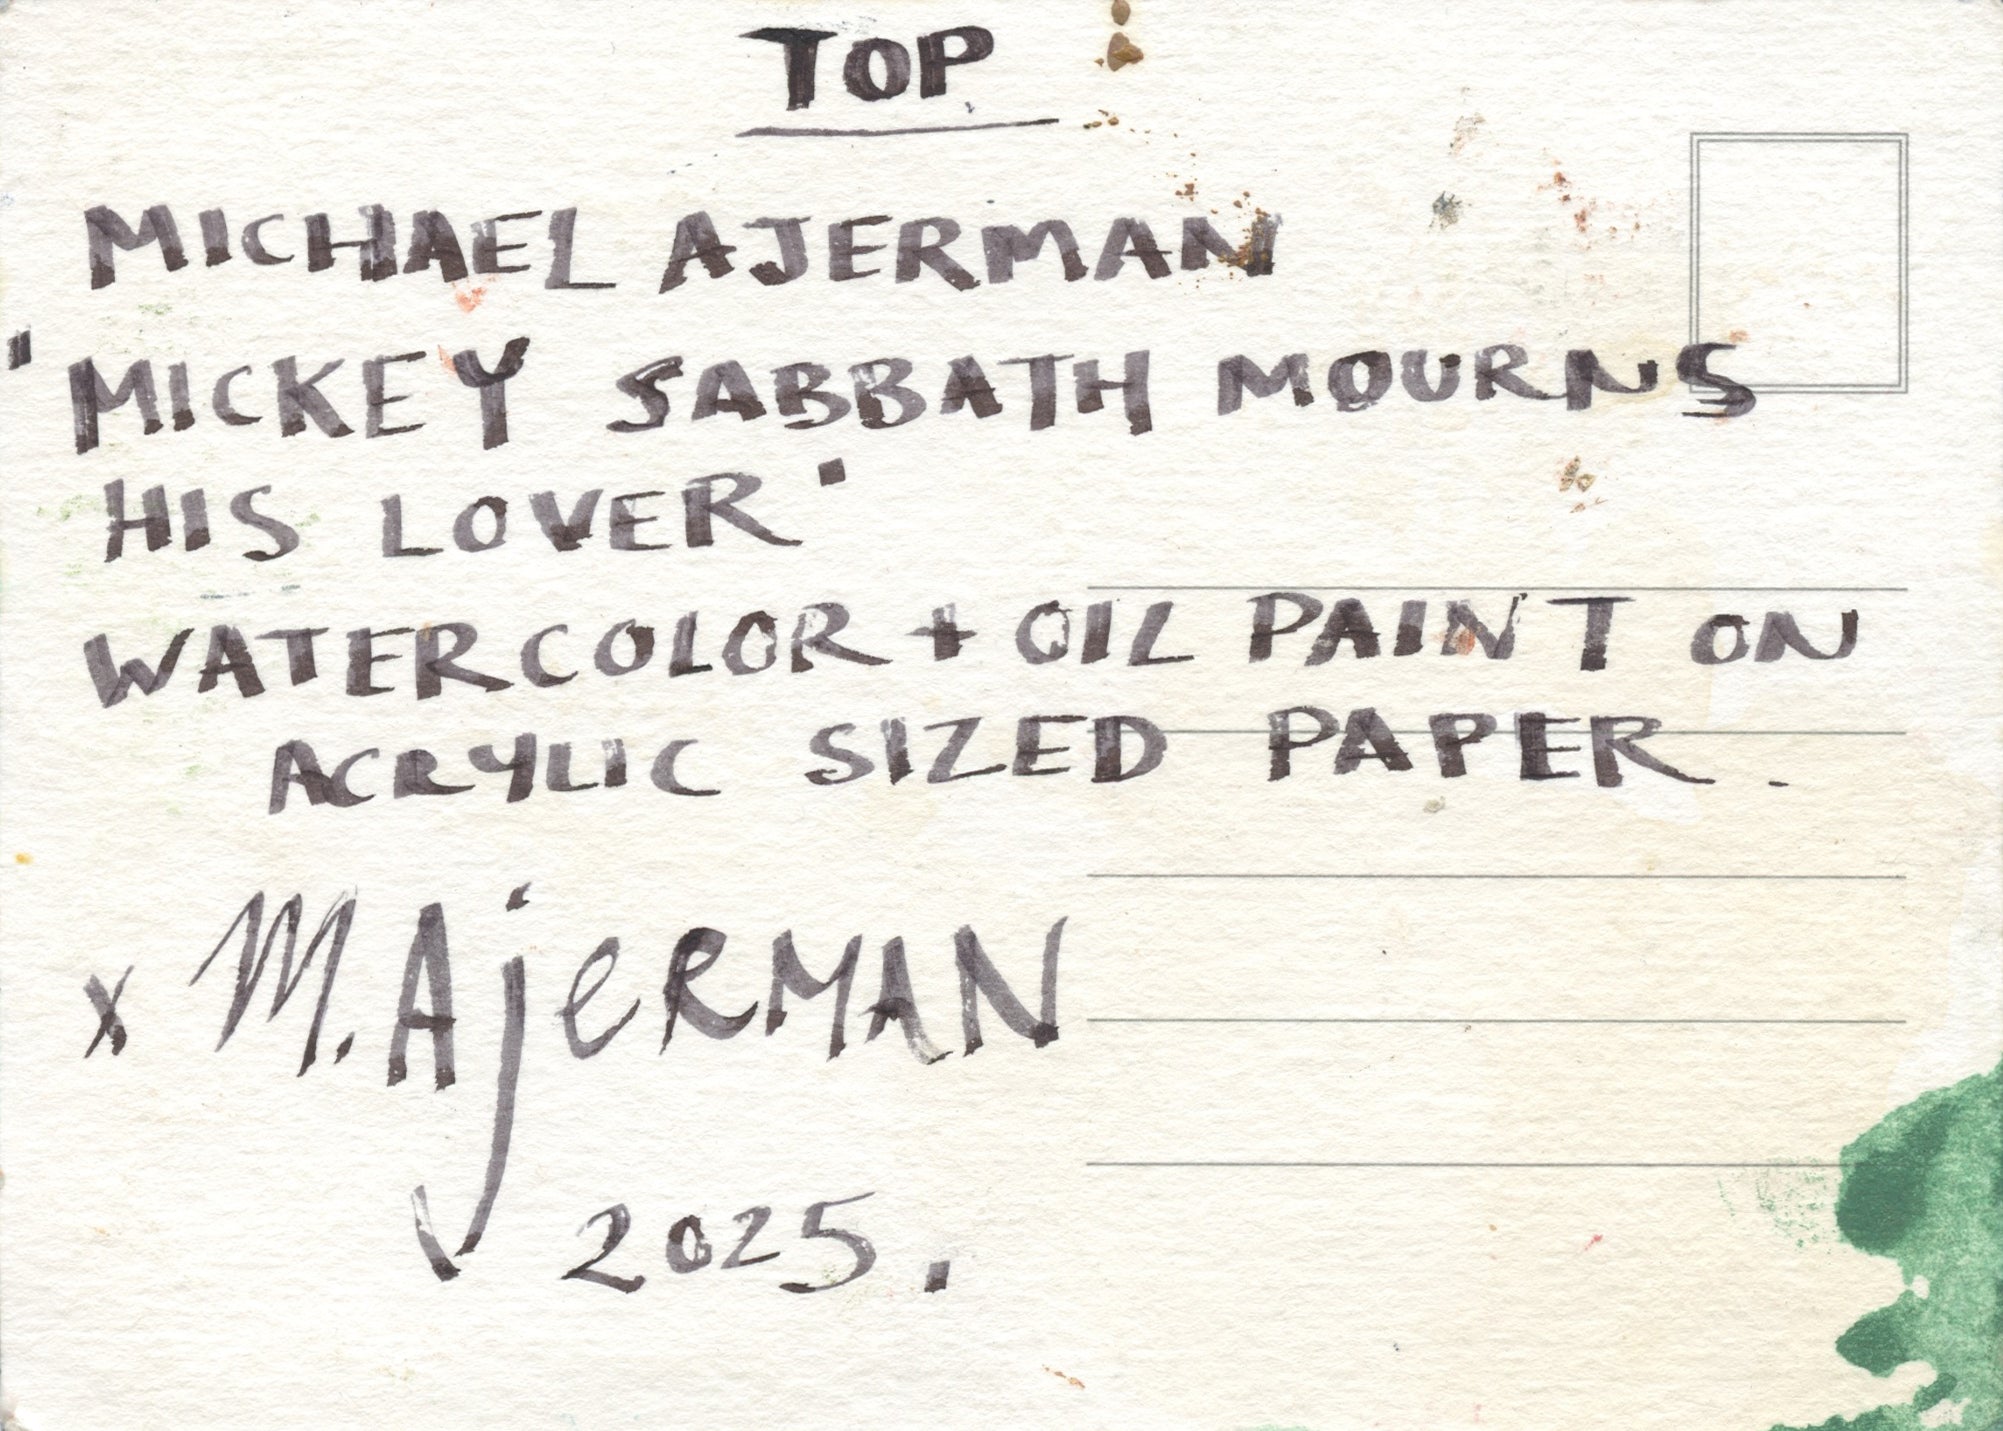 TOP
MICHAEL AJERMAN
"MICKEY SABBATH MOURNS
HIS LOVER"
WATERCOLOR + OIL PAINT ON
ACRYLIC SIZED PAPER.
x M. AjeRMAN
2025.